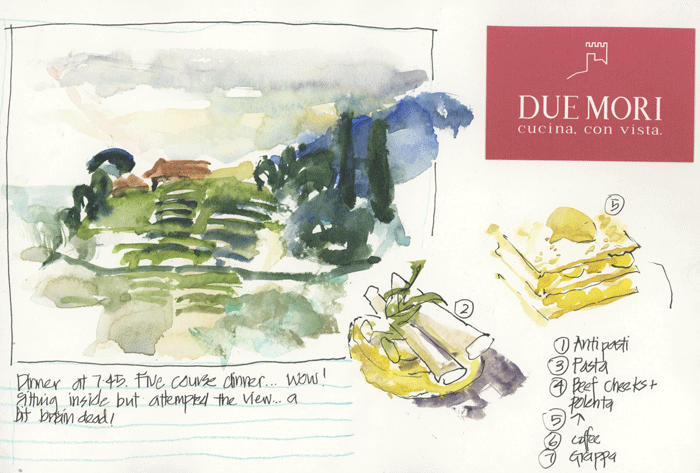 DUE MORI
cucina, con vista.
5
2
Dinner at 7:45. Five course dinner... wow!
Sitting inside but attempted the view... a
bit brain dead!
① Antipasti
③ Pasta
④ Beef cheeks +
polenta
⑤ ↗
⑥ coffee
⑦ Grappa